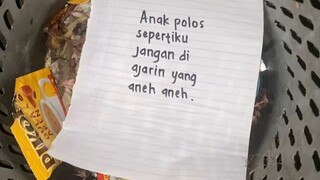 Anak polos
sepertiku
Jangan di
ajarin yang
aneh aneh.